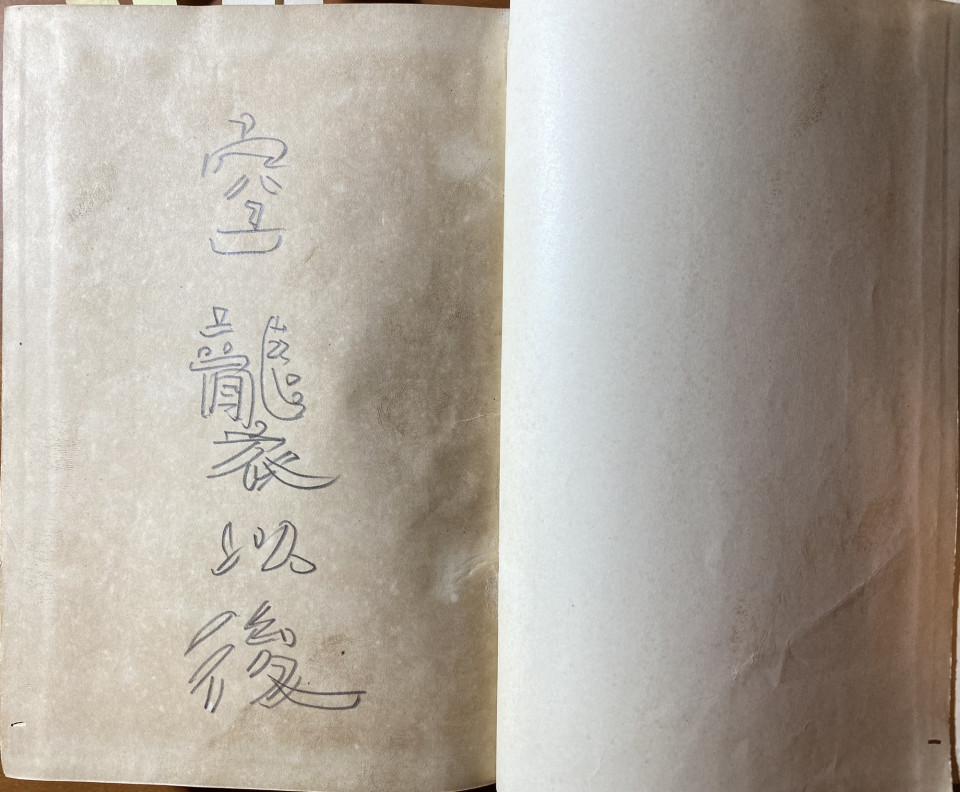 空襲以後